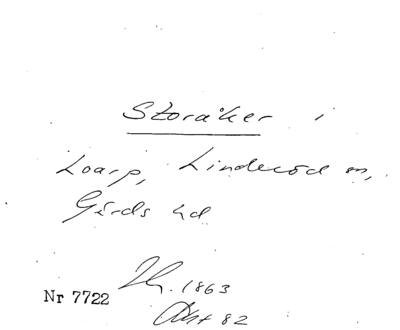 Storåker i
Loarp, Linderöd sn,
Gärds hd
1863
Nr 7722
82